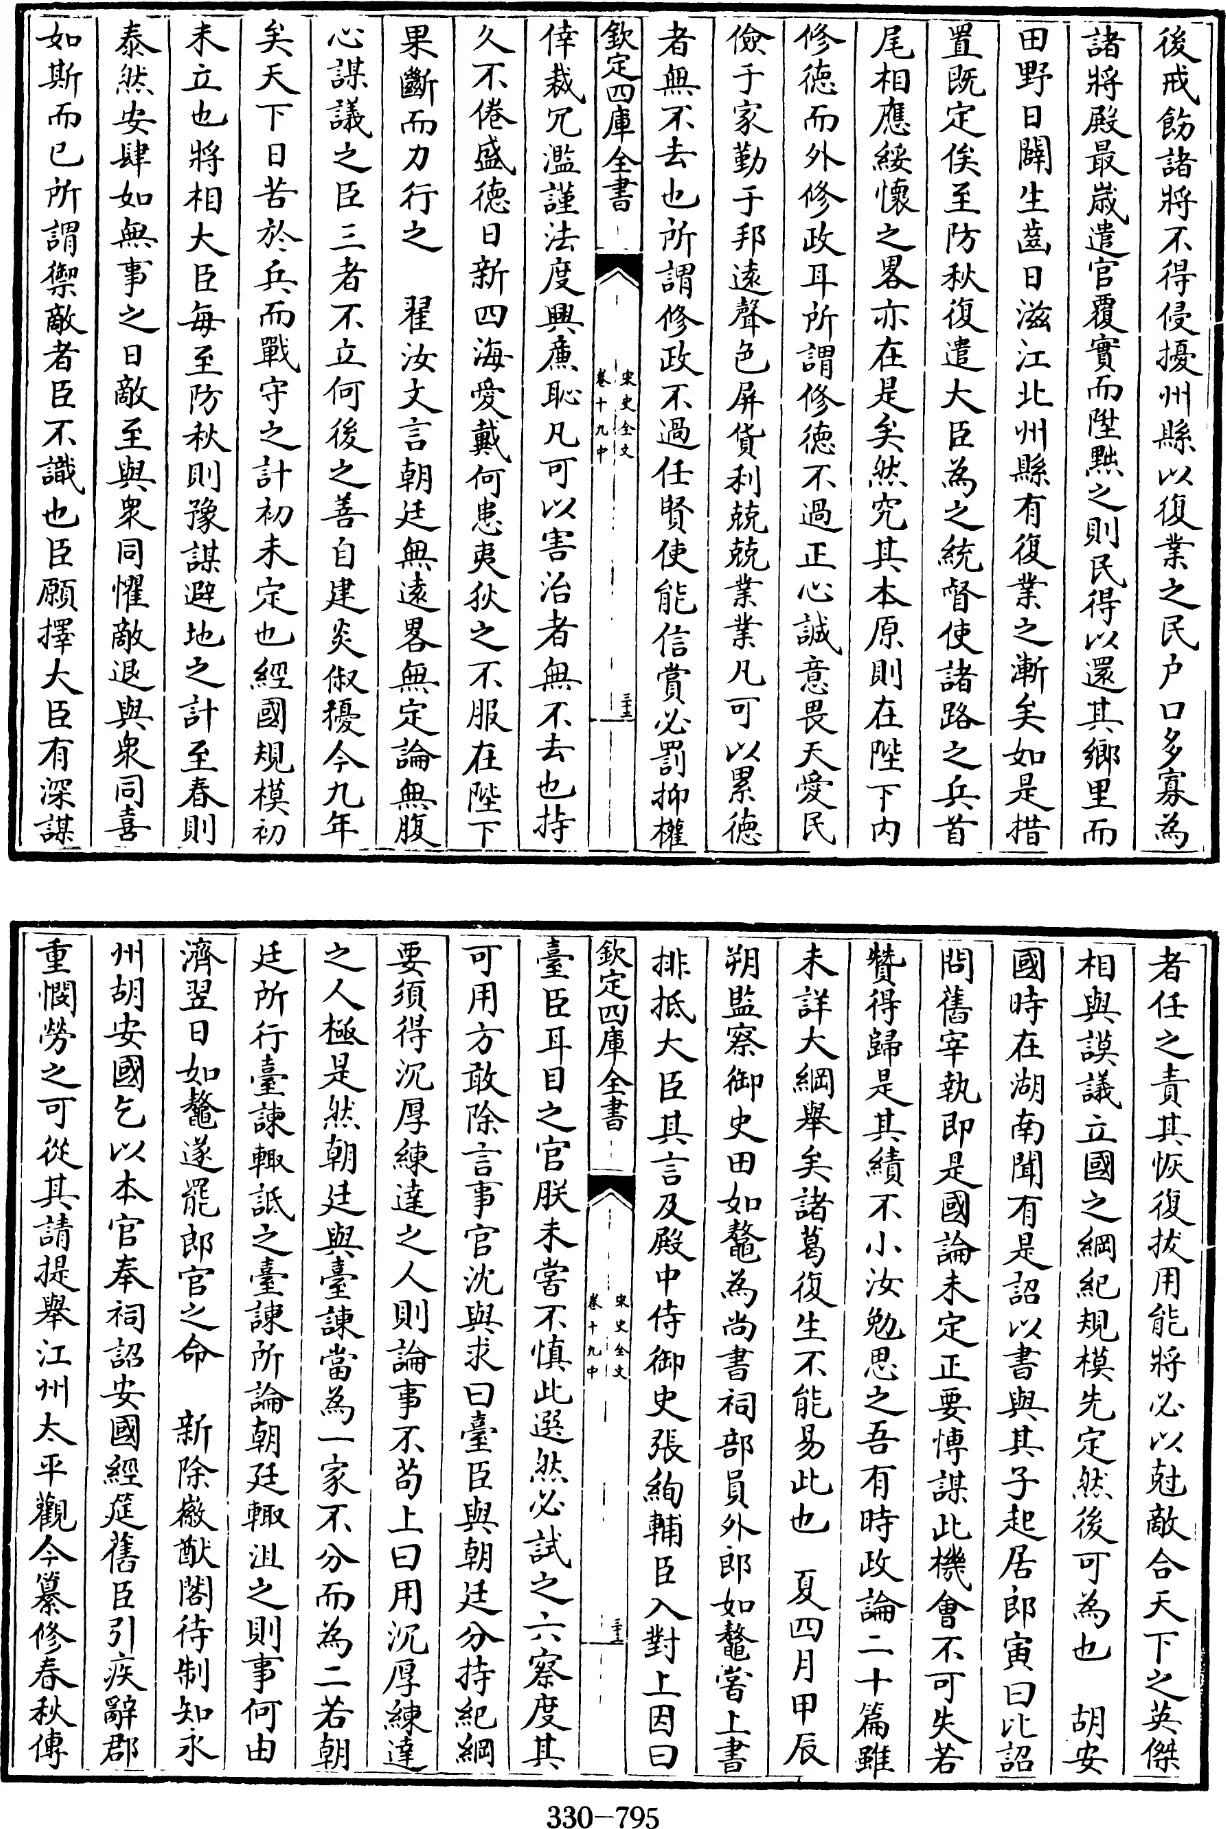 後戒飭諸將不得侵擾州縣以復業之民户口多寡為
諸將殿最嵗遣官覆實而陞黜之則民得以還其鄉里而
田野日闢生齒日滋江北州縣有復業之漸矣如是措
置既定俟至防秋復遣大臣為之統督使諸路之兵首
尾相應綏懷之畧亦在是矣然究其本原則在陛下内
修徳而外修政耳所謂修徳不過正心誠意畏天愛民
儉于家勤于邦逺聲色屏貨利兢兢業業凡可以累徳
者無不去也所謂修政不過任賢使能信賞必罰抑權
欽定四庫全書
宋史全文
卷十九中
三十三
倖裁冗濫謹法度興亷恥凡可以害治者無不去也持
久不倦盛徳日新四海愛戴何患夷狄之不服在陛下
果斷而力行之　翟汝文言朝廷無逺畧無定論無腹
心謀議之臣三者不立何後之善自建炎俶擾今九年
矣天下日苦於兵而戰守之計初未定也經國規模初
未立也將相大臣每至防秋則豫謀避地之計至春則
泰然安肆如無事之日敵至與衆同懼敵退與衆同喜
如斯而已所謂禦敵者臣不識也臣願擇大臣有深謀
者任之責其恢復拔用能將必以尅敵合天下之英傑
相與謨議立國之綱紀規模先定然後可為也　胡安
國時在湖南聞有是詔以書與其子起居郎寅曰比詔
問舊宰執即是國論未定正要博謀此機會不可失若
贊得歸是其績不小汝勉思之吾有時政論二十篇雖
未詳大綱舉矣諸葛復生不能易此也　夏四月甲辰
朔監察御史田如鼇為尚書祠部員外郎如鼇嘗上書
排抵大臣其言及殿中侍御史張絢輔臣入對上因曰
欽定四庫全書
宋史全文
卷十九中
臺臣耳目之官朕未嘗不慎此選然必試之六察度其
可用方敢除言事官沈與求曰臺臣與朝廷分持紀綱
要須得沉厚練達之人則論事不苟上曰用沉厚練達
之人極是然朝廷與臺諫當為一家不分而為二若朝
廷所行臺諫輙詆之臺諫所論朝廷輙沮之則事何由
濟翌日如鼇遂罷郎官之命　新除徽猷閣待制知永
州胡安國乞以本官奉祠詔安國經筵舊臣引疾辭郡
重憫勞之可從其請提舉江州太平觀令纂修春秋傳
330-795